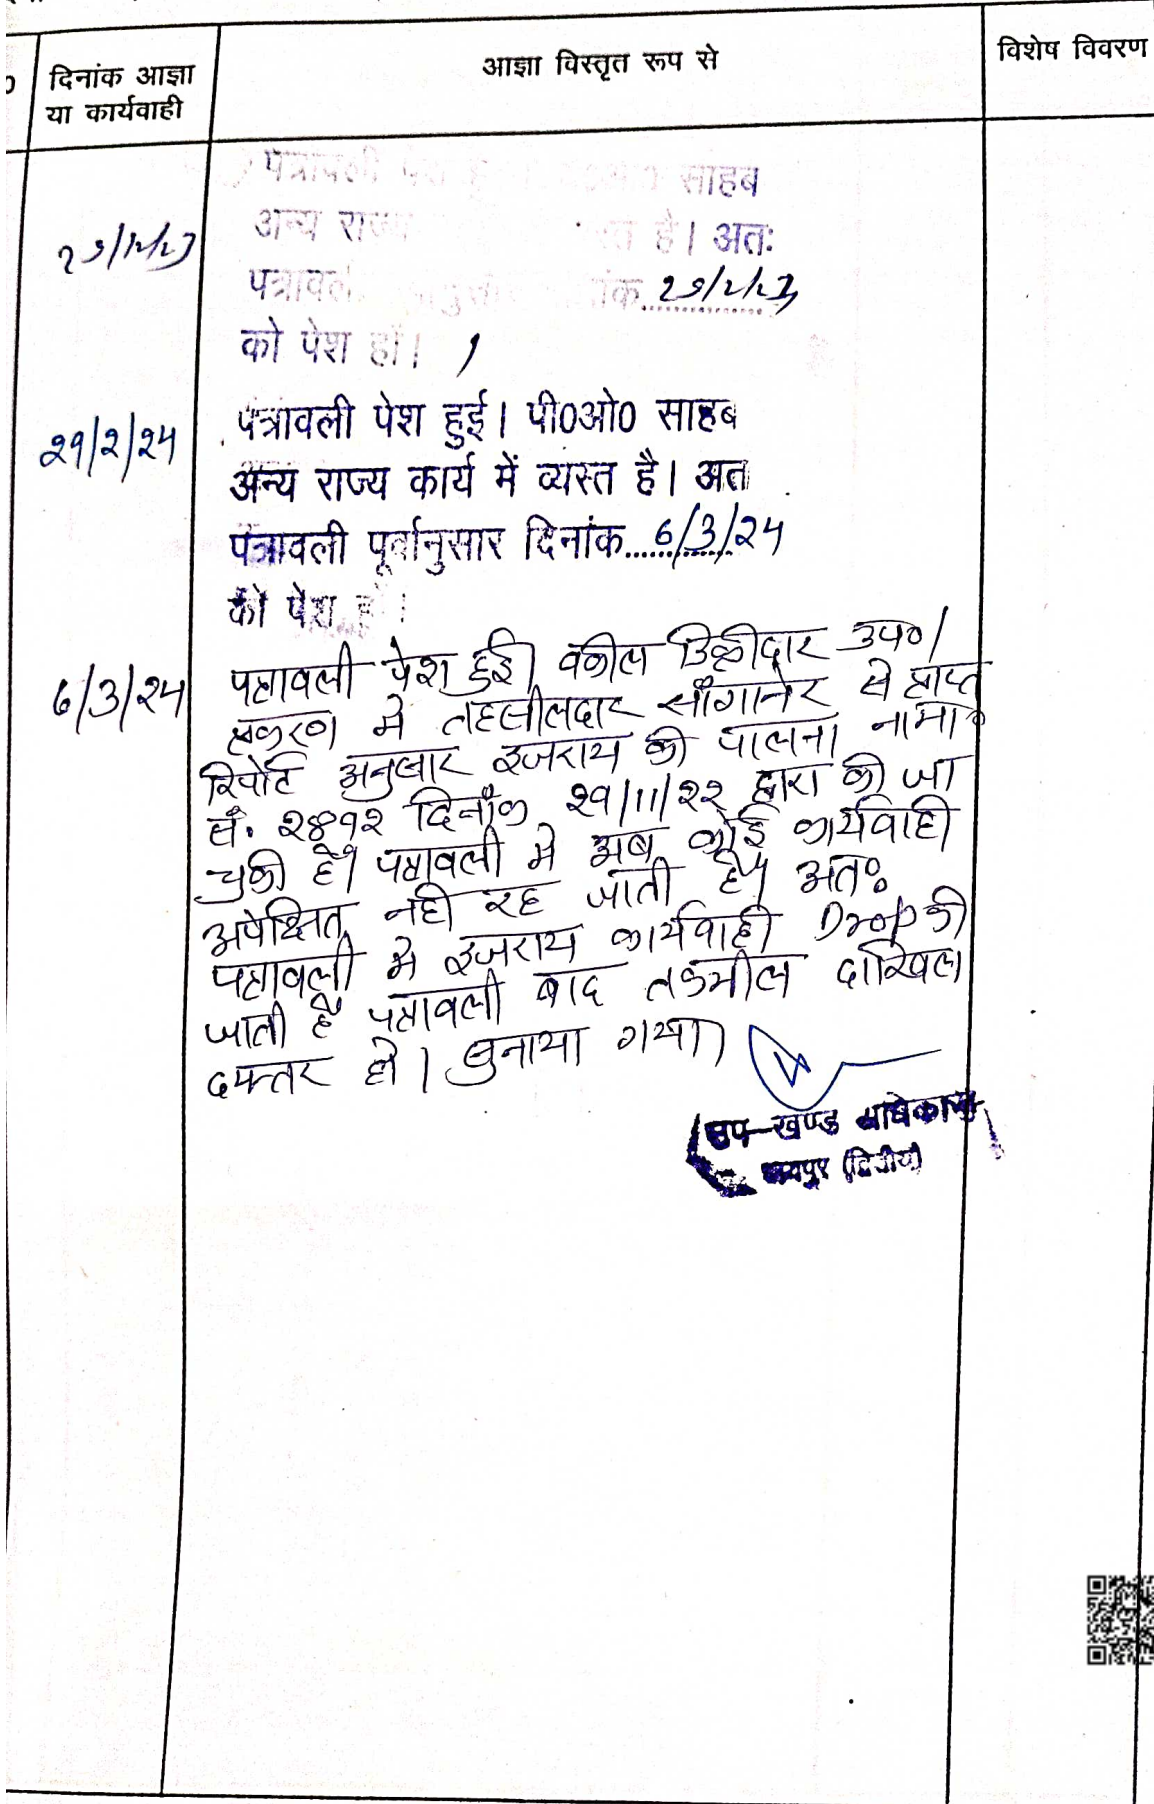 दिनांक आज्ञा
या कार्यवाही
आज्ञा विस्तृत रूप से
विशेष विवरण
पत्रावली पेश साहब
अन्य राज्य है। अतः
पत्रावली
को पेश हो।
२९/२/२४
पत्रावली पेश हुई। पी0ओ0 साहब
अन्य राज्य कार्य में व्यस्त है। अत
पत्रावली पूर्वानुसार दिनांक...6/3/२४
को पेश हो।
6/3/२४
पत्रावली पेश हुई। वकील डिक्रीदार उप०/
प्रकरण मे तहसीलदार साँगानेर से प्राप्त
रिपोर्ट अनुसार इजराय की पालना नामा०
सं. २४१२ दिनाँक २१/११/२२ द्वारा की जा
चुकी है। पत्रावली मे अब कोई कार्यवाही
अपेक्षित नही रह जाती है। अतः
पत्रावली मे इजराय कार्यवाही Drop की
जाती है पत्रावली बाद तकमील दाखिल
दफ्तर हो। सुनाया गया।
उप-खण्ड अधिकारी
जयपुर (द्वितीय)